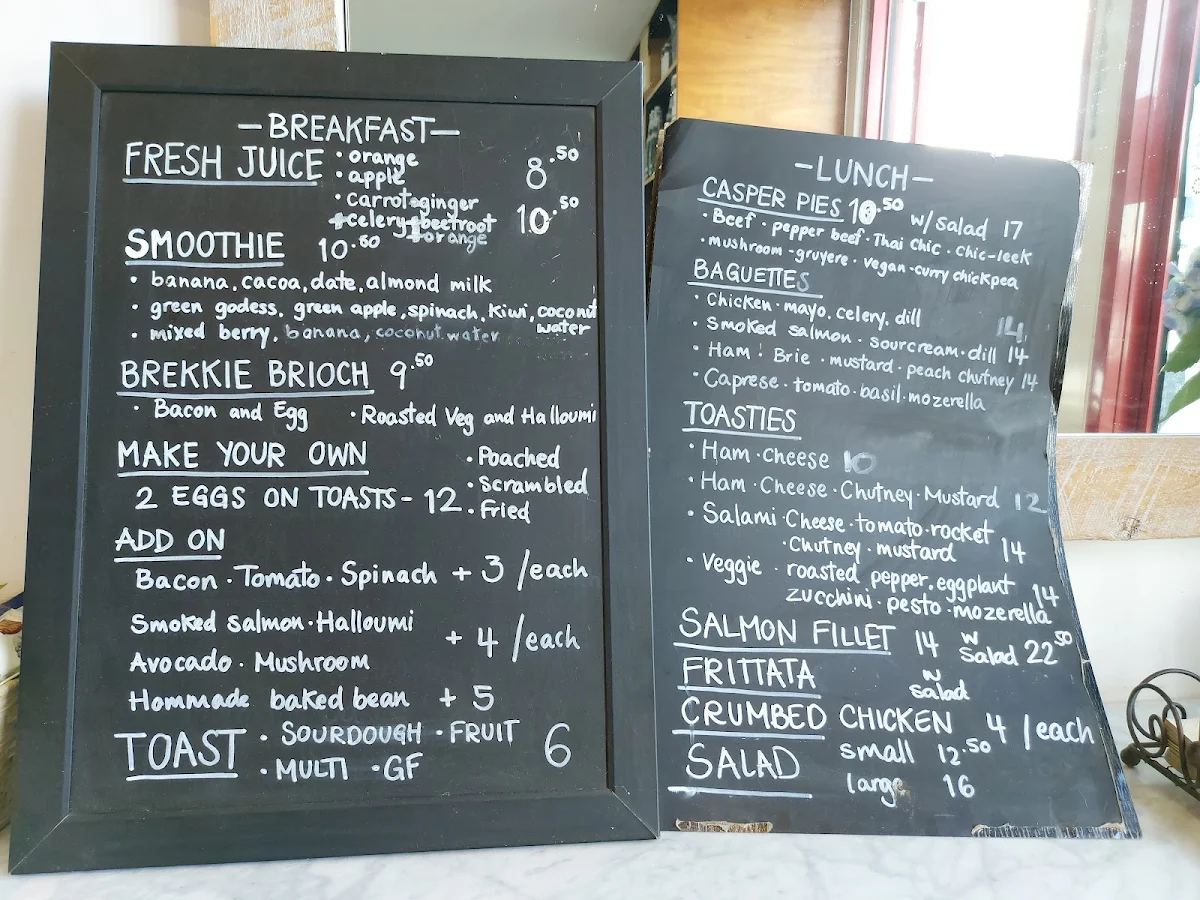 -BREAKFAST-
FRESH JUICE · orange 8.50
· apple
· carrot+ginger 10.50
+celery+beetroot
+orange
SMOOTHIE 10.50
· banana, cacoa, date, almond milk
· green godess, green apple, spinach, Kiwi, coconut water
· mixed berry, banana, coconut water
BREKKIE BRIOCH 9.50
· Bacon and Egg · Roasted Veg and Halloumi
MAKE YOUR OWN · Poached
2 EGGS ON TOASTS - 12 · Scrambled
· Fried
ADD ON
Bacon · Tomato · Spinach + 3 /each
Smoked salmon · Halloumi
+ 4 /each
Avocado · Mushroom
Hommade baked bean + 5
TOAST · SOURDOUGH · FRUIT 6
· MULTI · GF
-LUNCH-
CASPER PIES 10.50 w/salad 17
· Beef · pepper beef · Thai Chic · chic-leek
· mushroom · gruyere · vegan · curry chickpea
BAGUETTES
· Chicken · mayo, celery, dill 14
· Smoked salmon · sourcream · dill 14
· Ham · Brie · mustard · peach chutney 14
· Caprese · tomato · basil · mozerella
TOASTIES
· Ham · Cheese 10
· Ham · Cheese · Chutney · Mustard 12
· Salami · Cheese · tomato · rocket
· Chutney · mustard 14
· Veggie · roasted pepper, eggplant 14
zucchini · pesto · mozerella
SALMON FILLET 14 w salad 22.50
FRITTATA w salad
CRUMBED CHICKEN 4 /each
SALAD small 12.50
large 16